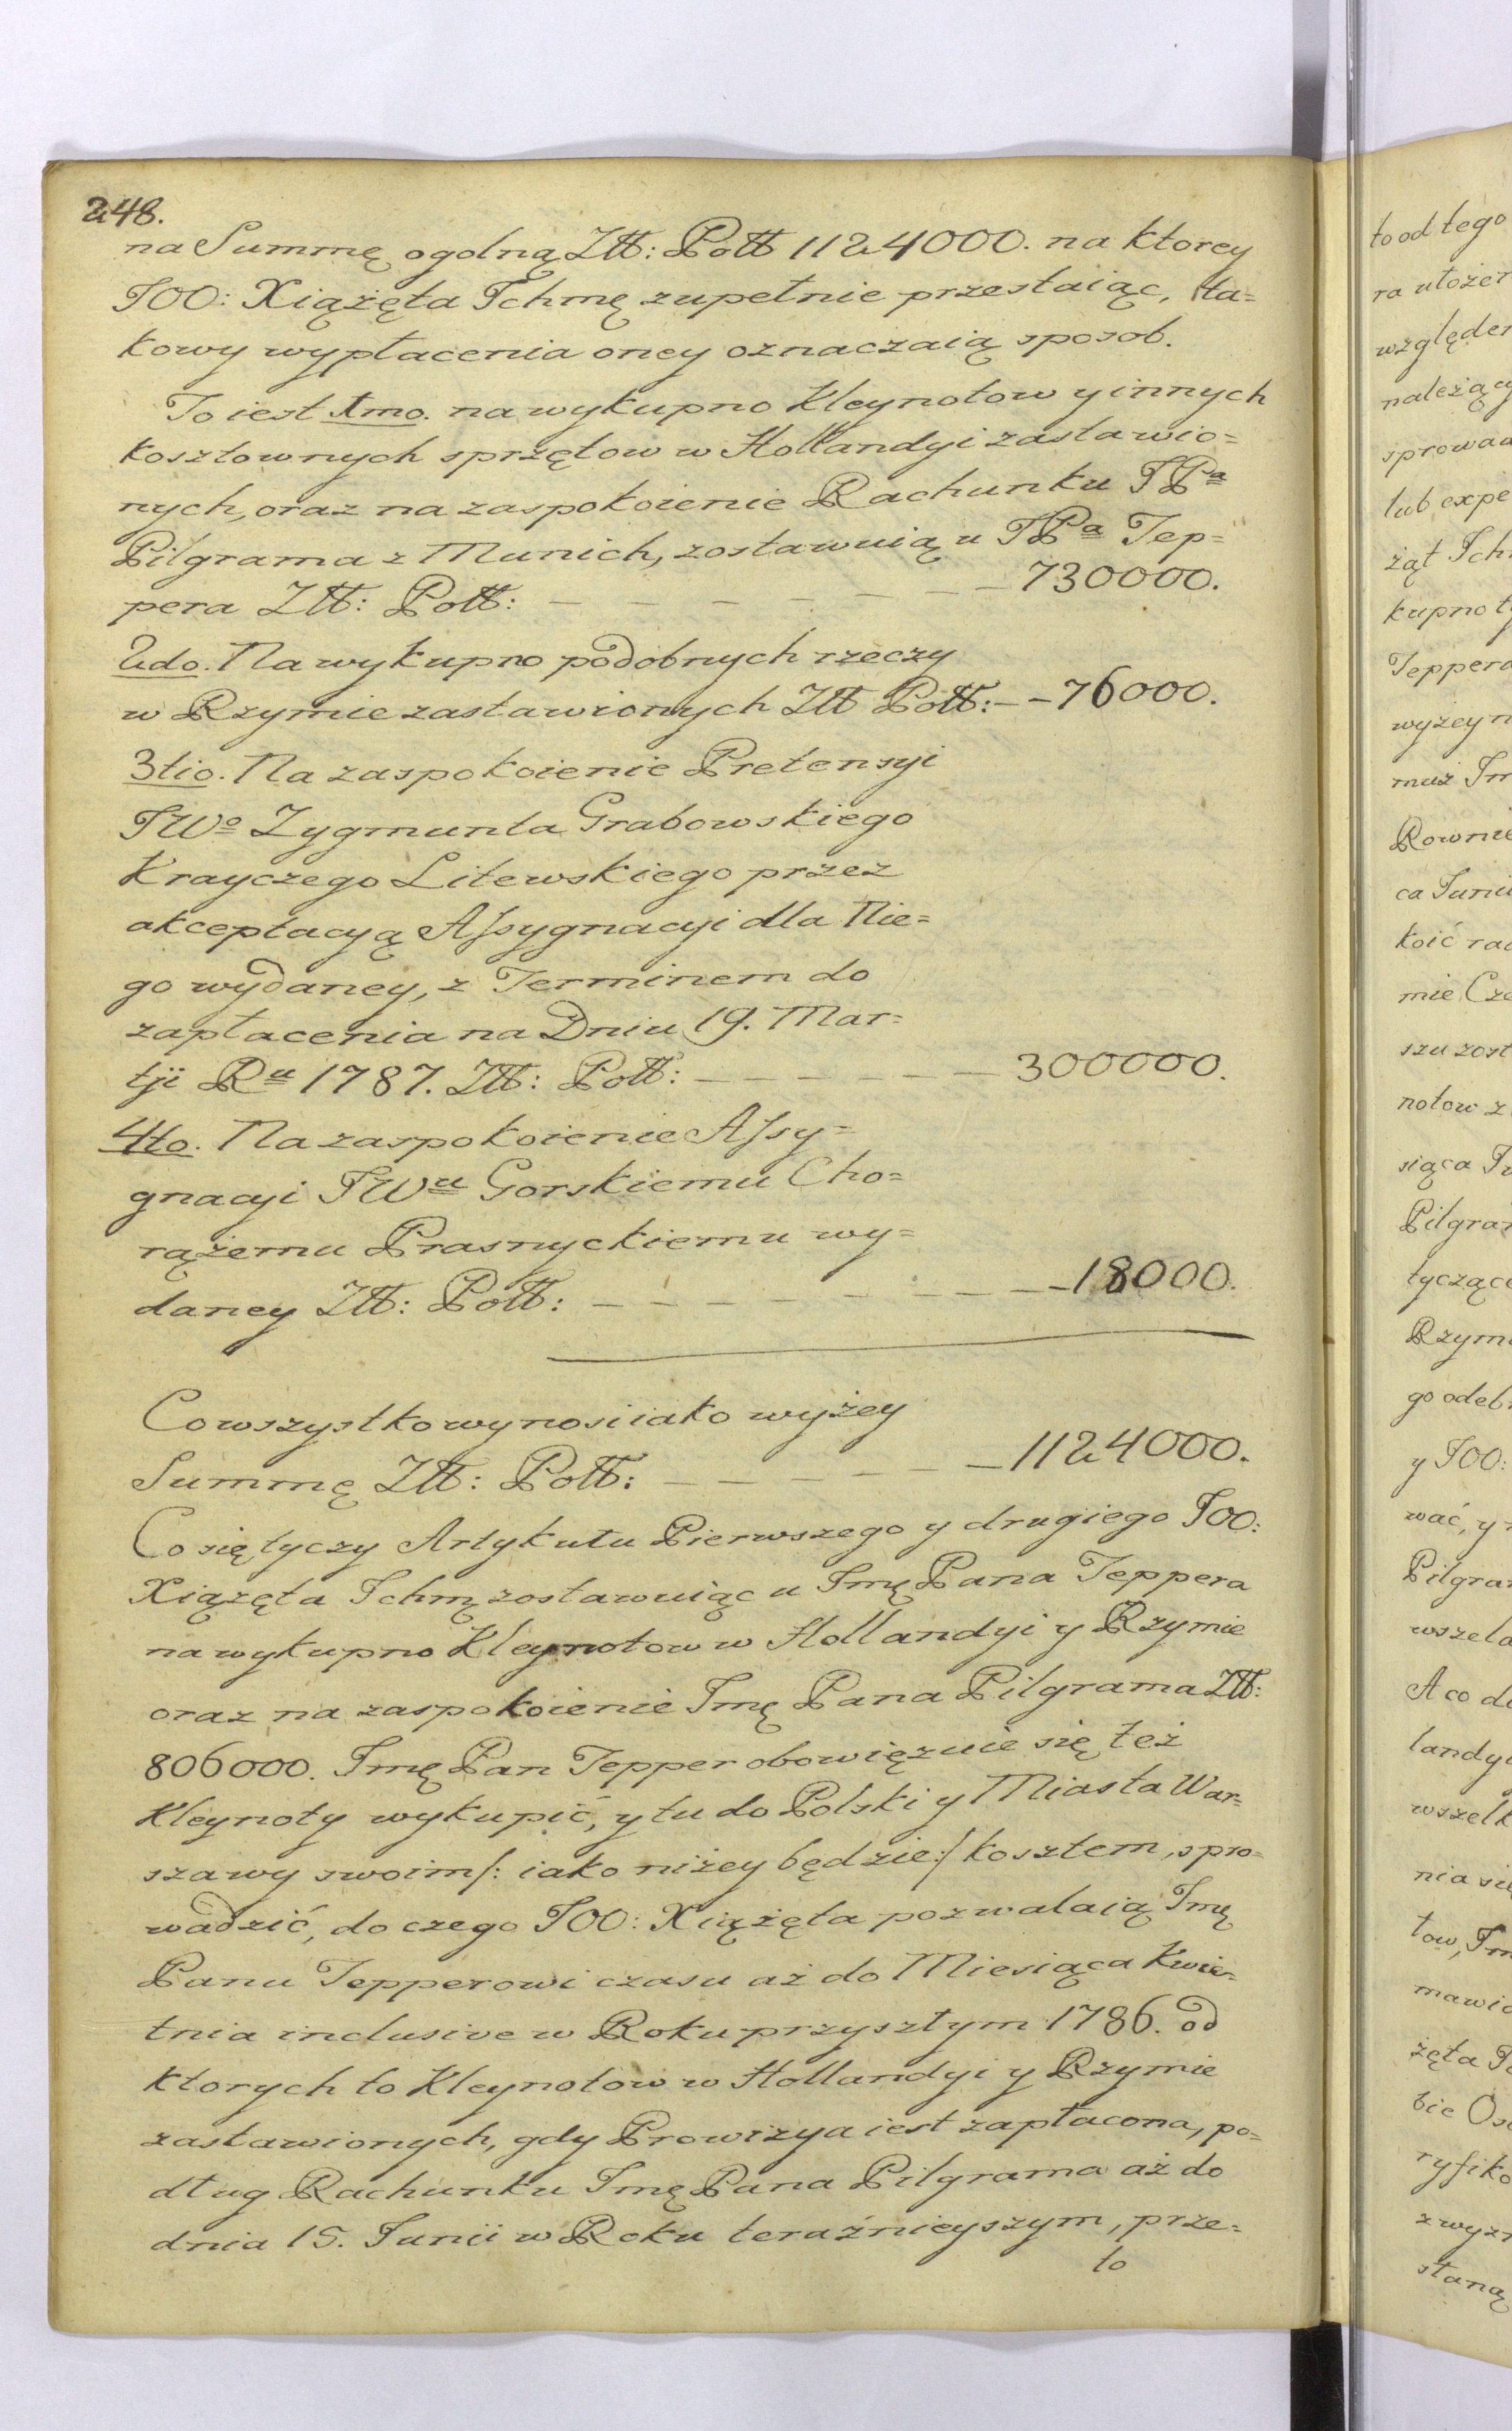 248.
na Summę ogolną Złł: Poll 1124000. na ktorey
JOO: Xiążęta Jchmę zupełnie przestaiąc, ta=
kowy wypłacenia oney oznaczaią sposob.
To iest 1mo. na wykupno Kleynotow y innych
kosztownych sprzętow w Hollandyi zastawio=
nych, oraz na zaspokoienie Rachunku JPa
Pilgrama z Munich, zostawuią u JPa Tep=
pera Złł: Poll: – – – – – – – 730000.
2do. Na wykupno podobnych rzeczy
w Rzymie zastawionych Złł Poll: – – 76000.
3tio. Na zaspokoienie Pretensyi
JWo Zygmunta Grabowskiego
Krayczego Litewskiego przez
akceptacyą Assygnacyi dla Nie=
go wydaney, z Terminem do
zapłacenia na Dniu 19. Mar=
tji Ru 1787. Złł: Poll: – – – – – – 300000.
4to. Na zaspokoienie Assy=
gnacyi JWu Gorskiemu Cho=
rążemu Prasnyckiemu wy=
daney Złł: Poll: – – – – – – – – 18000.
Co wszystko wynosi iako wyżey
Summę Złł: Poll: – – – – – – – 1124000.
Co się tyczy Artykułu Pierwszego y drugiego JOO:
Xiążęta Jchmę zostawuiąc u Jmę Pana Teppera
na wykupno Kleynotow w Hollandyi y Rzymie
oraz na zaspokoienie Jmę Pana Pilgrama Złł:
806000. Jmę Pan Tepper obowięzuie się też
Kleynoty wykupić, y tu do Polski y Miasta War=
szawy swoim /: iako niżey będzie :/ kosztem, spro=
wadzić, do czego JOO: Xiążęta pozwalaią Jmę
Panu Tepperowi czasu aż do Miesiąca Kwie=
tnia inclusive w Roku przyszłym 1786. od
ktorych to Kleynotow w Hollandyi y Rzymie
zastawionych, gdy Prowizya iest zapłacona, po=
dług Rachunku Jmę Pana Pilgrama aż do
dnia 15. Junii w Roku teraźnieyszym, prze=
to
to od tego
ra ułożen
względem
należący
sprowad
lub expe
żąt Jch
kupno t
Teppera
wyżey
muż Jm
Rownie
ca Junii
koić
mie
szu zost
notow z
siąca
Pilgra
tyczące
Rzym
go odeb
y JOO:
wać, y
Pilgra
wszela
A co d
landy
wszelk
nia
tow, Jm
mawi
żęta
bie Os
ryfik
staną